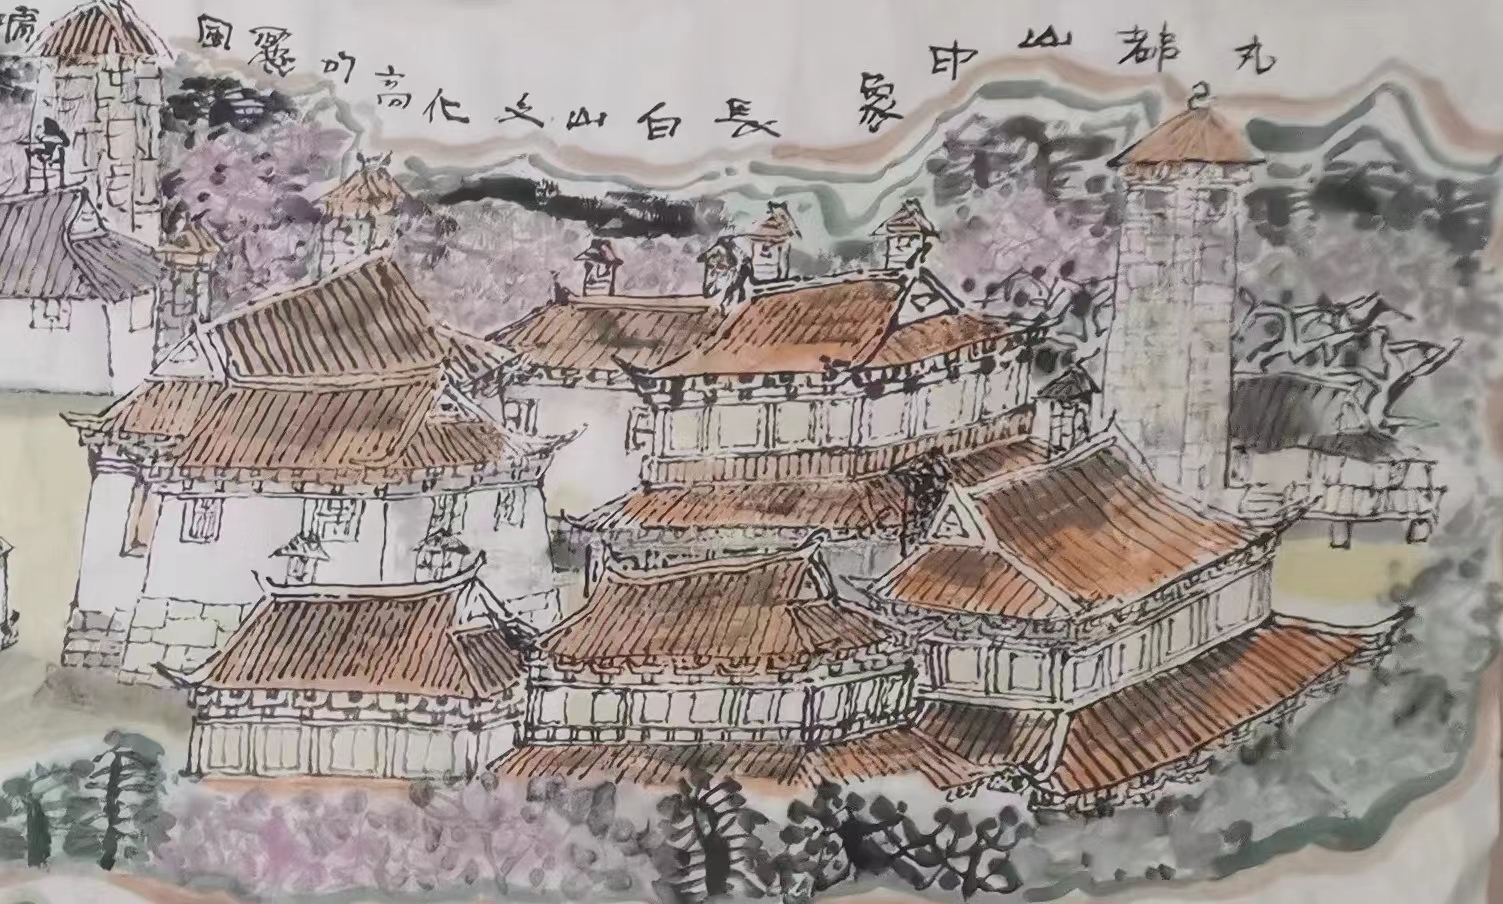 丸都山印象長白山文化高的麗風